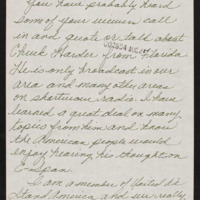 You have probably heard
some of your viewers call
in and quote or talk about
Chuck Harder from Florida
He is only broadcast in our
area and many other areas
on shortwave radio. I have
learned a great deal on many
topics from him and know
the American people would
enjoy hearing his thoughts on
C-span.
I am a member of United We
Stand America and we really